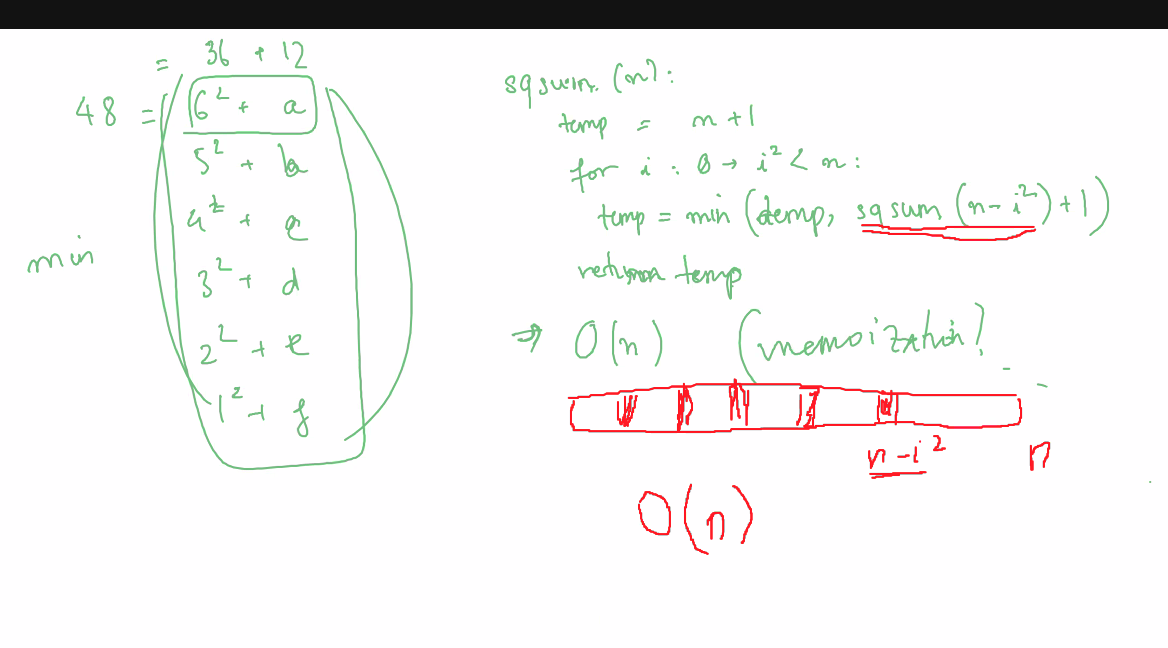 = 36 + 12
48 = 6² + a
5² + b
4² + c
3² + d
min
2² + e
1² + f
sqsum (n):
temp = n+1
for i : 0 → i² < n:
temp = min (temp, sqsum (n-i²)+1)
return temp
⇒ O(n) (memoization!
n-i² n
O(n)